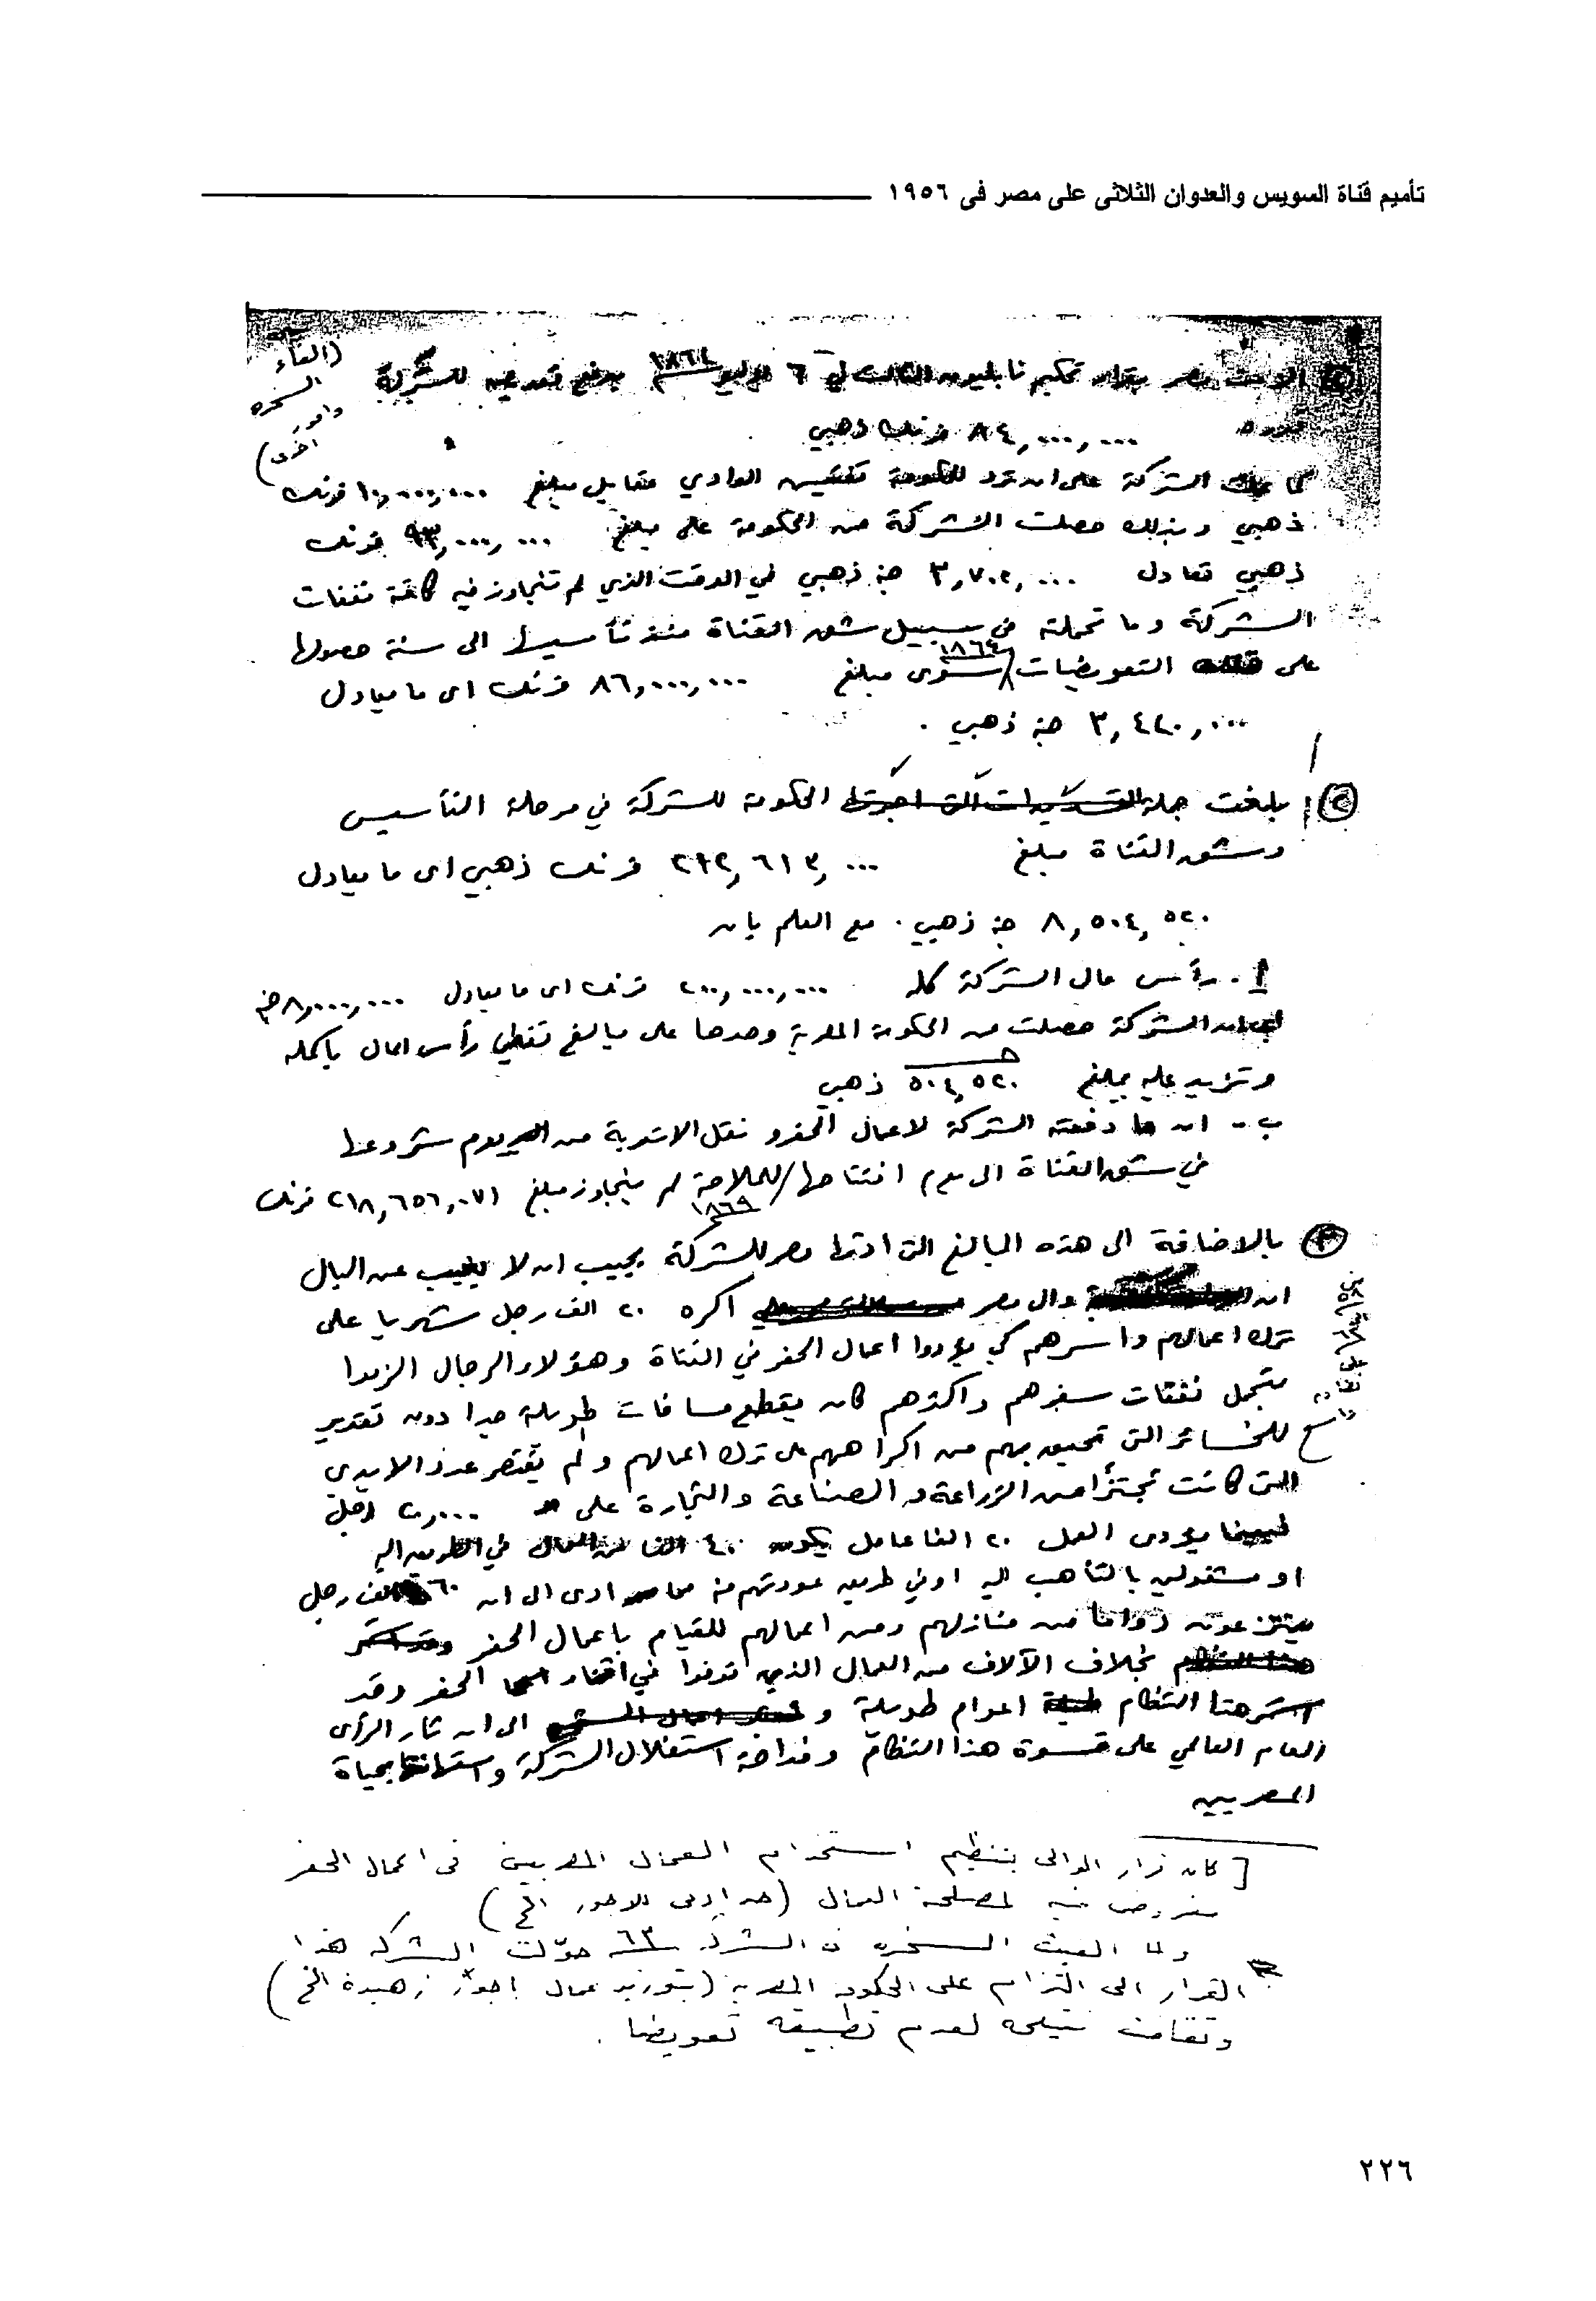 تأميم قناة السويس والعدوان الثلاثى على مصر فى ١٩٥٦
(الغاء
السخره
وامور
اخرى)
الزمت مصر بقرار تحكيم نابليون الثالث في ٦ يوليو ١٨٦٤ بدفع تعويض للشركة
قدره ٨٤,٠٠٠,٠٠٠ فرنك ذهبي
كما الشركة على ان ترد للحكومة تفتيش الوادي مقابل مبلغ ١٠,٠٠٠,٠٠٠ فرنك
ذهبي وبذلك حصلت الشركة من الحكومة على مبلغ ٩٣,٠٠٠,٠٠٠ فرنك
ذهبي تعادل ٣,٧٠٢,٠٠٠ جنيه ذهبي في الوقت الذي لم تتجاوز فيه كافة نفقات
الشركة وما تحملته في سبيل شق القناة منذ تأسيسها الى سنة حصولها
على التعويضات ١٨٦٤ سوى مبلغ ٨٦,٠٠٠,٠٠٠ فرنك اى ما يعادل
٣,٤٤٠,٠٠٠ جنيه ذهبي .
٢ بلغت جملة الحكومة للشركة في مرحلة التأسيس
وشق القناة مبلغ ٢١٢,٦١٣,٠٠٠ فرنك ذهبي اى ما يعادل
٨,٥٠٤,٥٢٠ جنيه ذهبي . مع العلم بان
أ . رأس مال الشركة كله ٢٠٠,٠٠٠,٠٠٠ فرنك اى ما يعادل ٨,٠٠٠,٠٠٠ جنيه
اى ان الشركة حصلت من الحكومة المصرية وحدها على مبالغ تغطي رأس المال باكمله
وتزيد عليه بمبلغ ٥٠٤,٥٢٠ ذهبي
ب - ان ما دفعته الشركة لاعمال الحفر و نقل الاتربة من يوم شروعها
في شق القناة الى يوم افتتاحها للملاحة ١٨٦٩ لم يتجاوز مبلغ ٢١٨,٦٥٦,٠٧١ فرنك
٣ بالاضافة الى هذه المبالغ التى ادتها مصر للشركة يجب ان لا يغيب عن البال
ان والى مصر اكره ٢٠ الف رجل شهريا على
ترك اعمالهم واسرهم كي يؤدوا اعمال الحفر في القناة وهؤلاء الرجال الزموا
بتحمل نفقات سفرهم واكثرهم كان يقطع مسافات طويلة جدا دون تقدير
للخسائر التى تحيق بهم من اكراههم على ترك اعمالهم ولم يقتصر عدد الايدي
التى كانت تجتزأ من الزراعة و الصناعة والتجارة على ٢٠,٠٠٠ رجل
فبينما يؤدى العمل ٢٠ الفا عامل يكون ٤٠ الفا من العمال في الطريق اليه
او مشغولين بالتأهب اليه او في طريق عودتهم منه مما ادى الى ان ٦٠ الف رجل
ينتزعون دواما من منازلهم ومن اعمالهم للقيام باعمال الحفر
بخلاف الآلاف من العمال الذين توفوا في اثناء الحفر وقد
استمر هذا النظام اعوام طويلة و الى ان ثار الرأى
العام العالمي على قسوة هذا النظام وفداحة استغلال الشركة واستهانتها بحياة
المصريين
[ كان قرار الوالى بتنظيم استخدام العمال المصريين فى اعمال الحفر
مفروض فيه لمصلحة العمال (حد ادنى للاجور الخ)
ولما الغيت السخره ٦٣ حوّلت الشركه هذا
القرار الى التزام على الحكومه المصريه (بتوريد عمال باجور زهيدة الخ)
وتقاضت نتيجه لعدم تطبيقه تعويضا .
٢٢٦